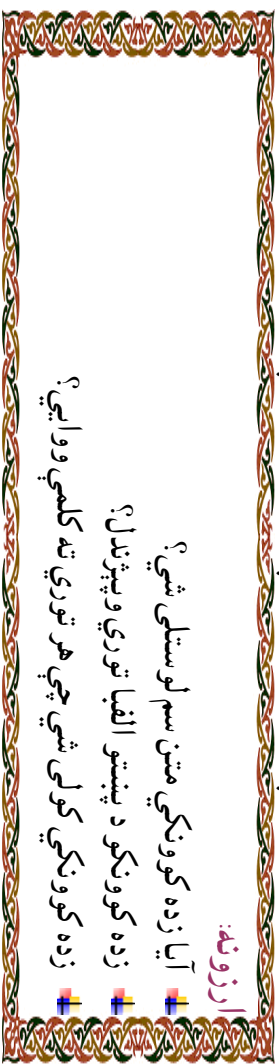 ارزونه:
آیا زده کوونکي متن سم لوستلی شي؟
زده کوونکو د پښتو الفبا توري وپیژندل؟
زده کوونکي کولی شي چي هر توري ته کلمې ووایي؟